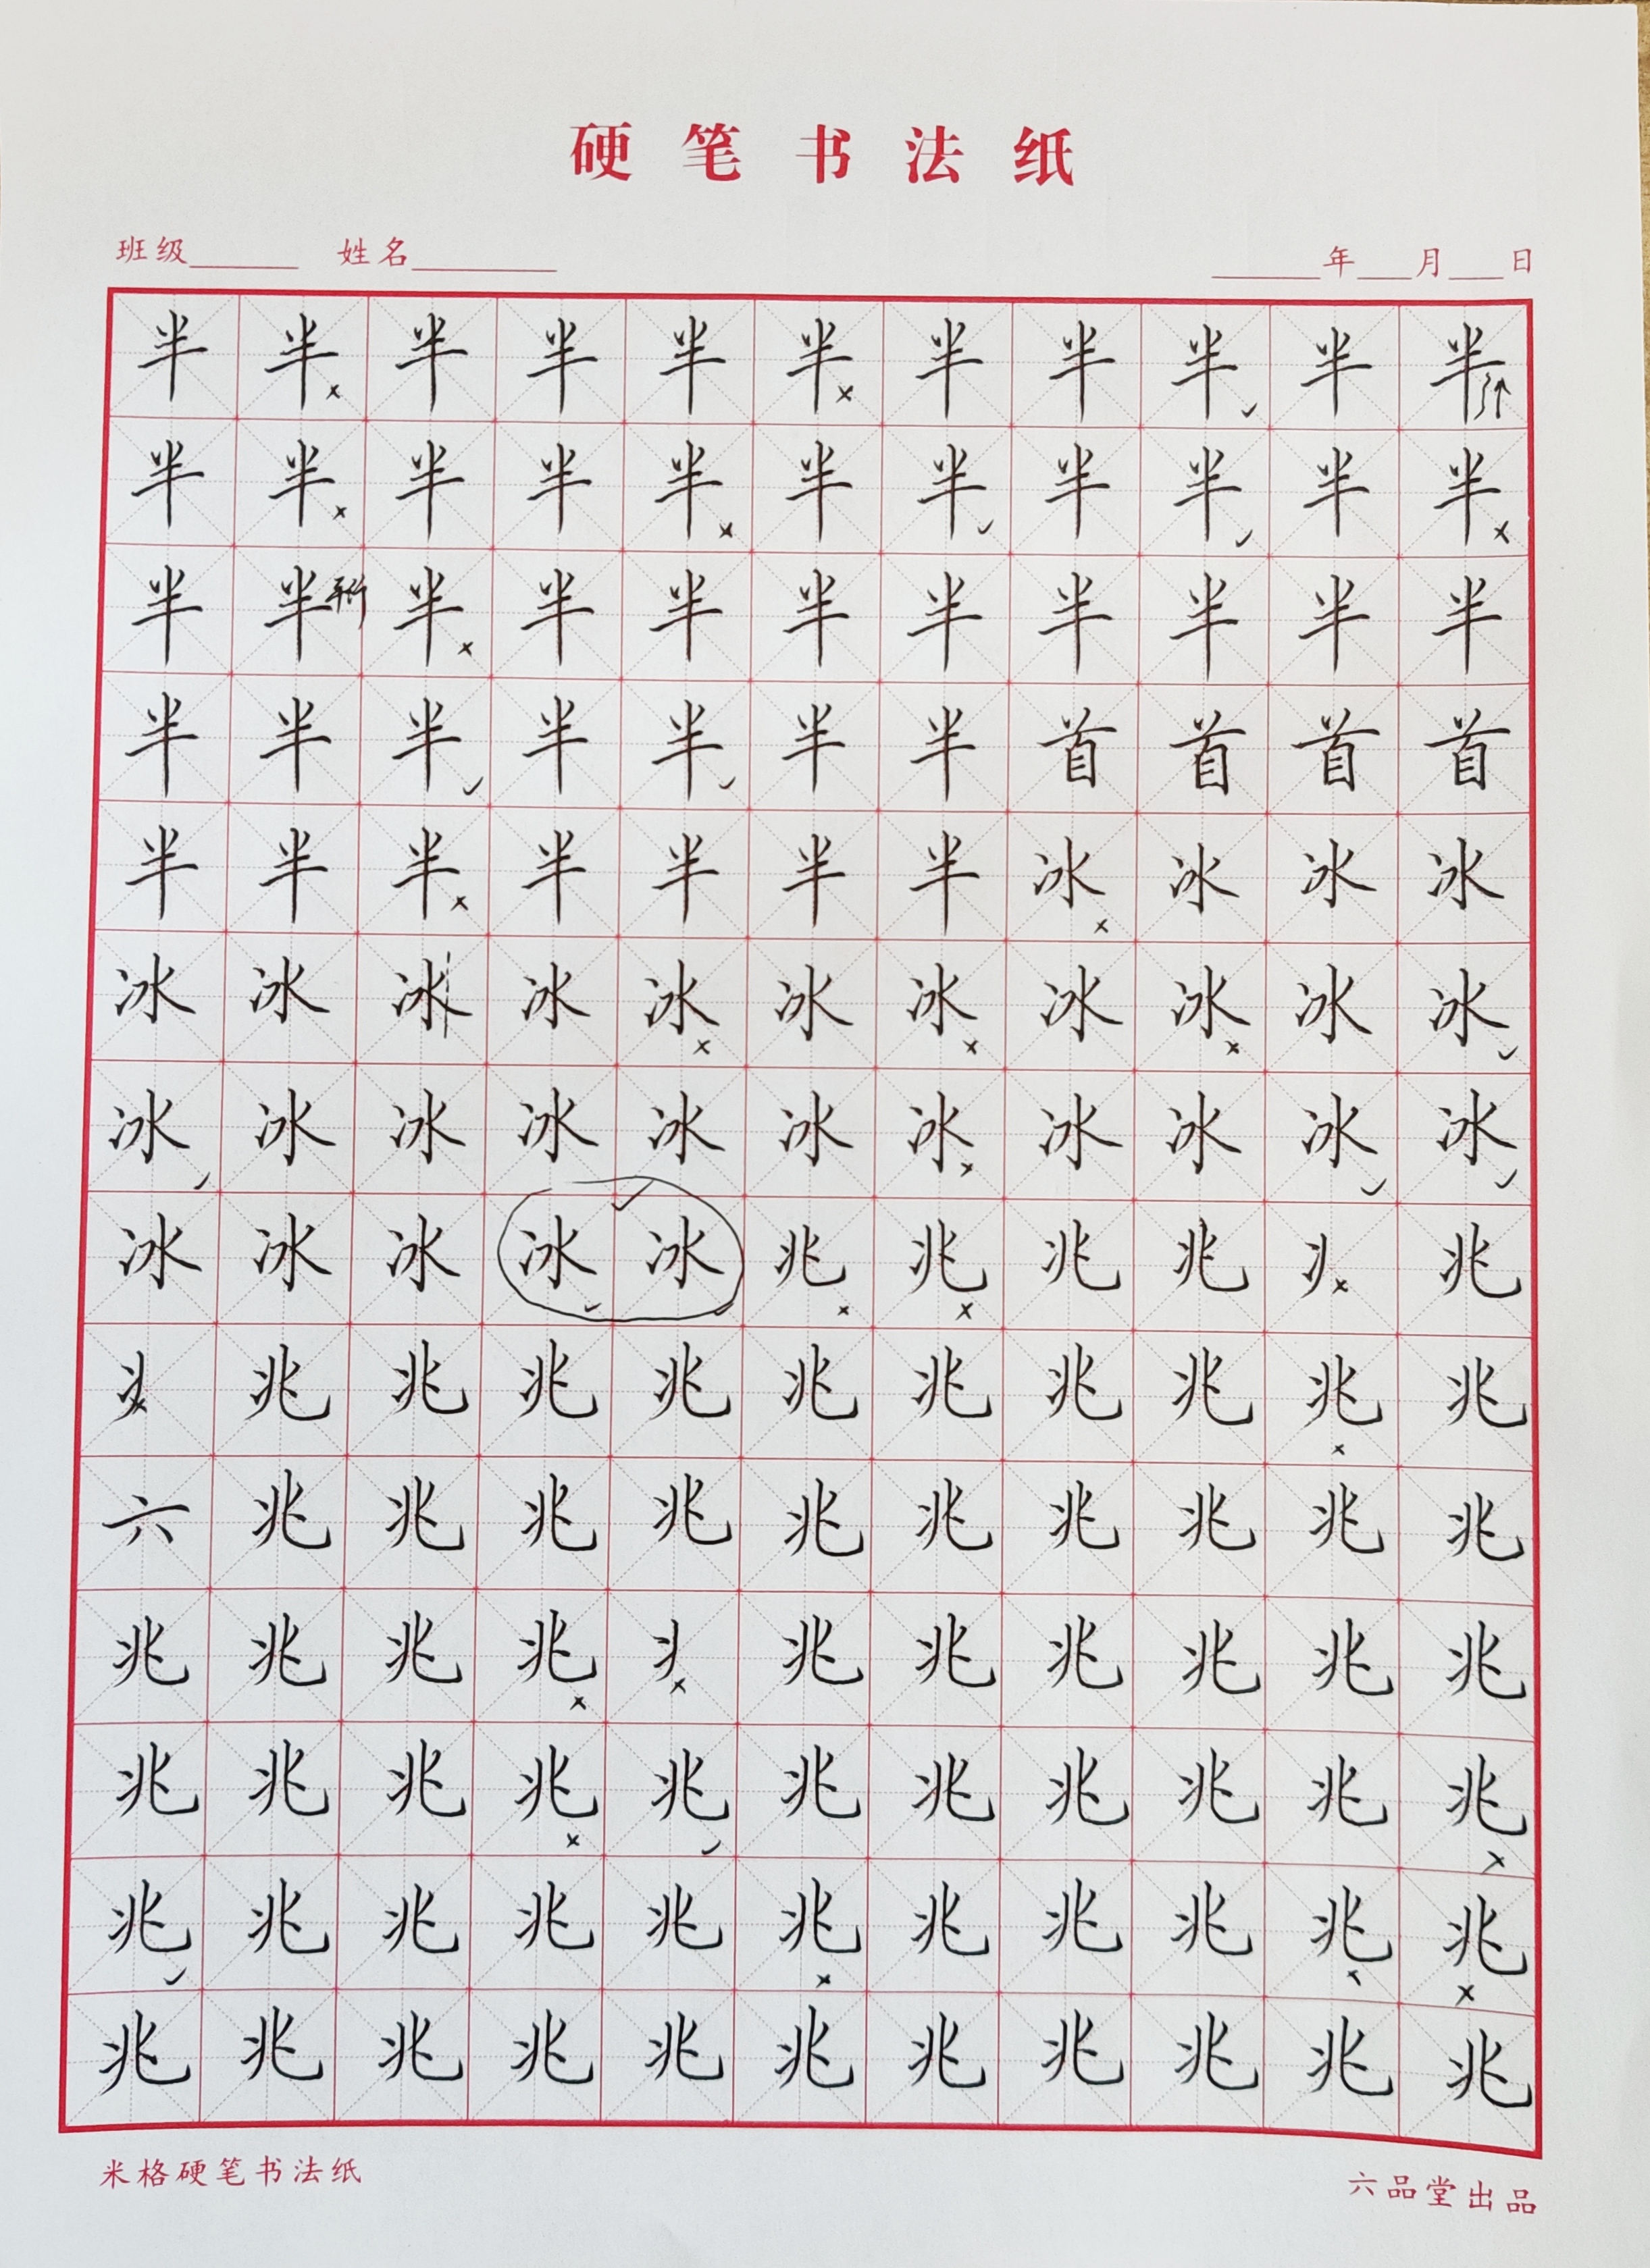 硬笔书法纸
班级______ 姓名________ ______年___月___日
半半半半半半半半半半半
半半半半半半半半半半半
半半平行半半半半半半半半半
半半半半半半半首首首首
半半半半半半半冰冰冰冰
冰冰冰冰冰冰冰冰冰冰冰
冰冰冰冰冰冰冰冰冰冰冰
冰冰冰冰冰兆兆兆兆兆
兆兆兆兆兆兆兆兆兆兆
六兆兆兆兆兆兆兆兆兆兆
兆兆兆兆兆兆兆兆兆兆
兆兆兆兆兆兆兆兆兆兆兆
兆兆兆兆兆兆兆兆兆兆兆
兆兆兆兆兆兆兆兆兆兆兆
米格硬笔书法纸 六品堂出品